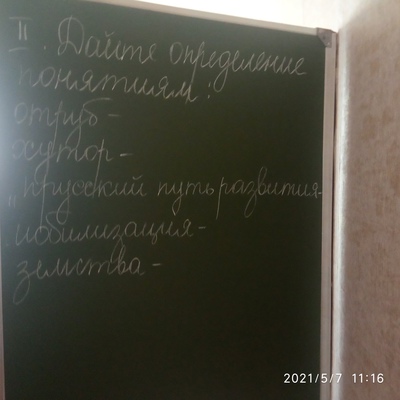 II. Дайте определение
понятиям:
отруб-
хутор-
"прусский путь развития-
мобилизация-
земства-
2021/5/7 11:16